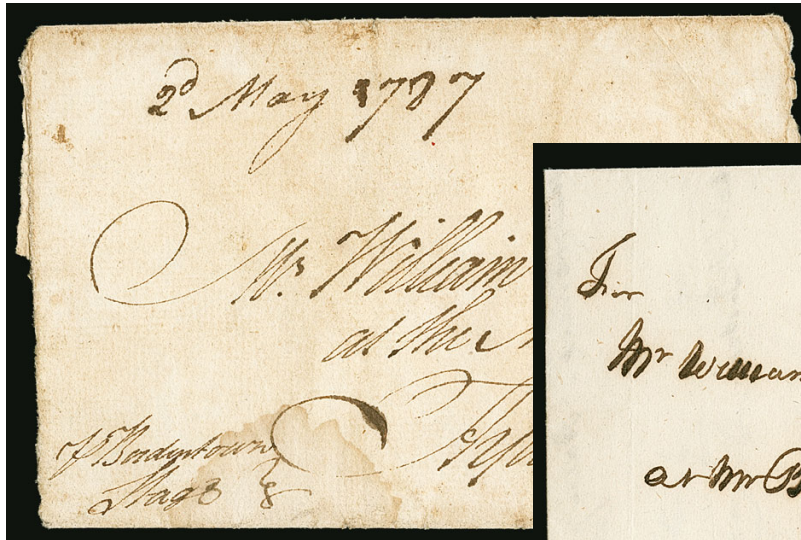 2d May 1787
Mr. William
at the
Bordentown
Stage
For
Mr William
at Mr B